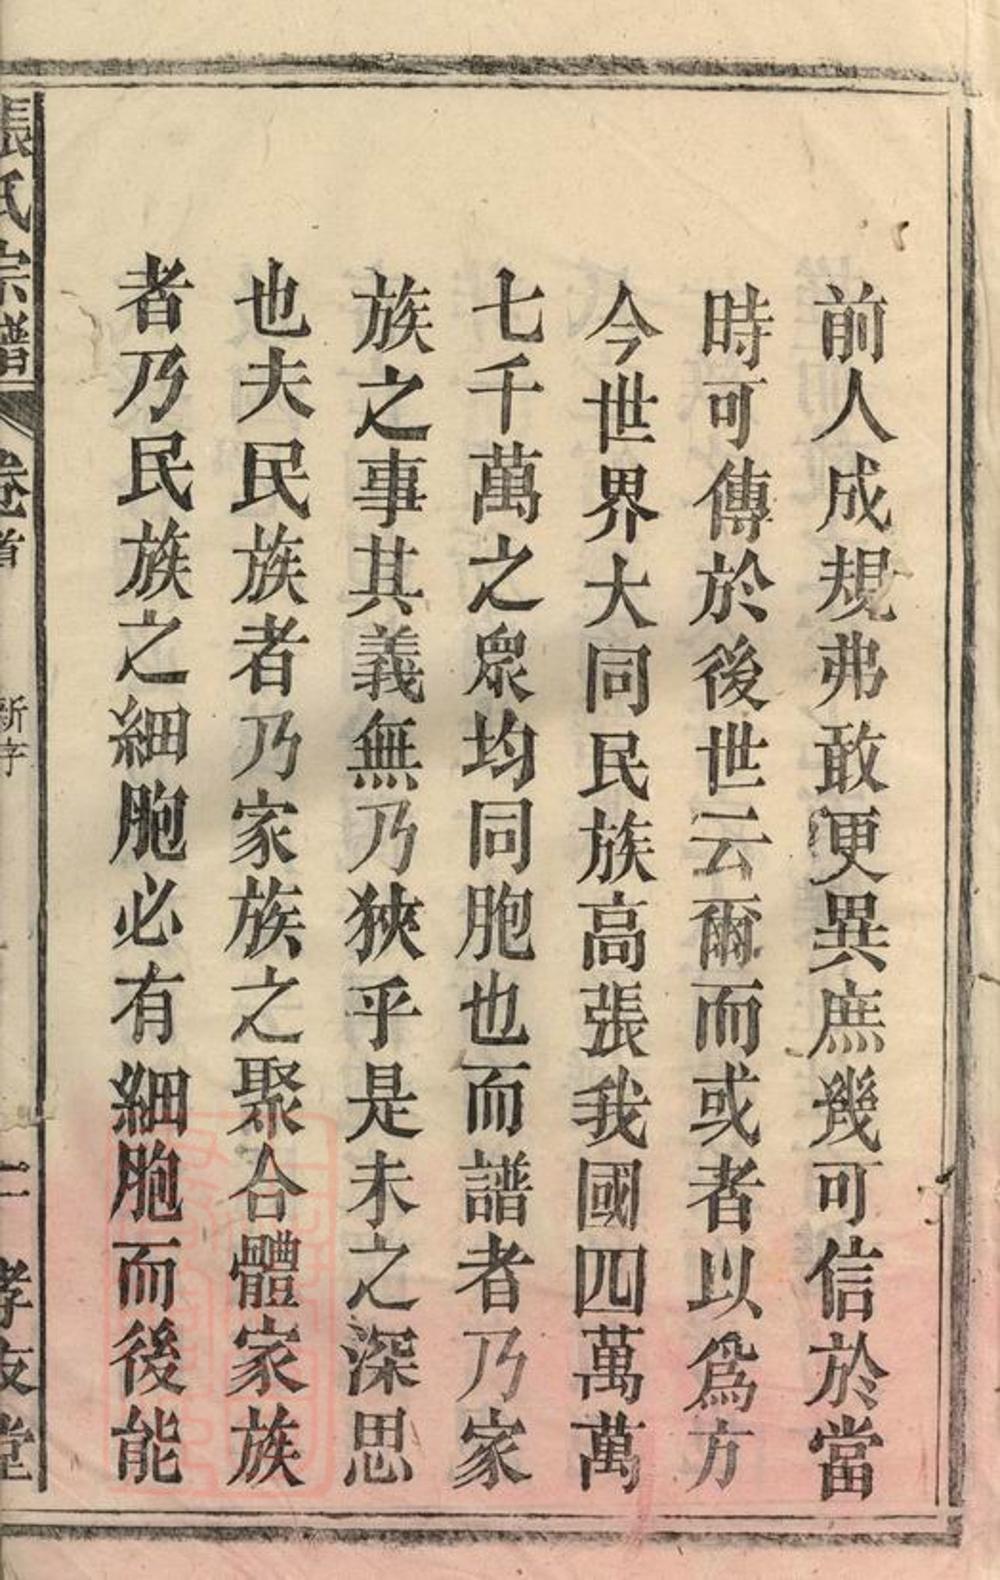 前人成規弗敢更異庶幾可信於當
時可傳於後世云爾而或者以爲方
今世界大同民族高張我國四萬萬
七千萬之眾均同胞也而譜者乃家
族之事其義無乃狹乎是未之深思
也夫民族者乃家族之聚合體家族
者乃民族之細胞必有細胞而後能
張氏宗譜 卷首 新序 二 孝友堂